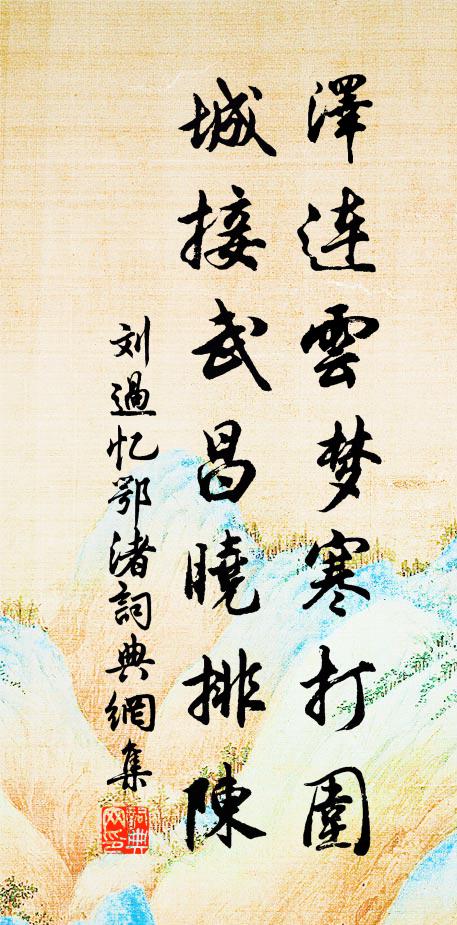 澤連雲梦寒打圍
城接武昌曉排陳
刘過忆鄂渚詞典網集
詞典
网印